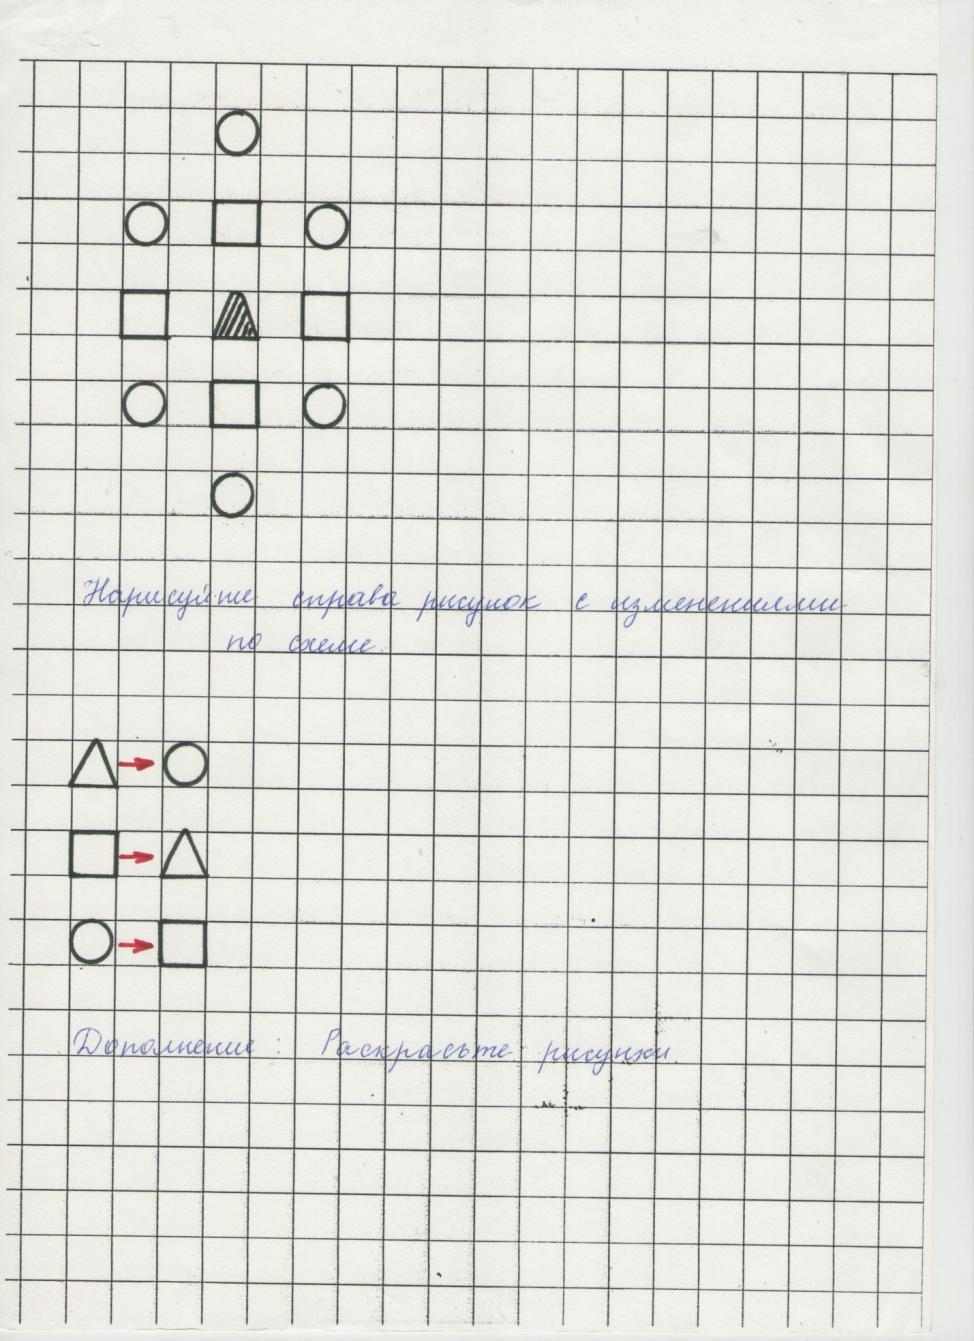 Нарисуйте справа рисунок с изменениями
по схеме.
Дополнение: Раскрасьте рисунки.